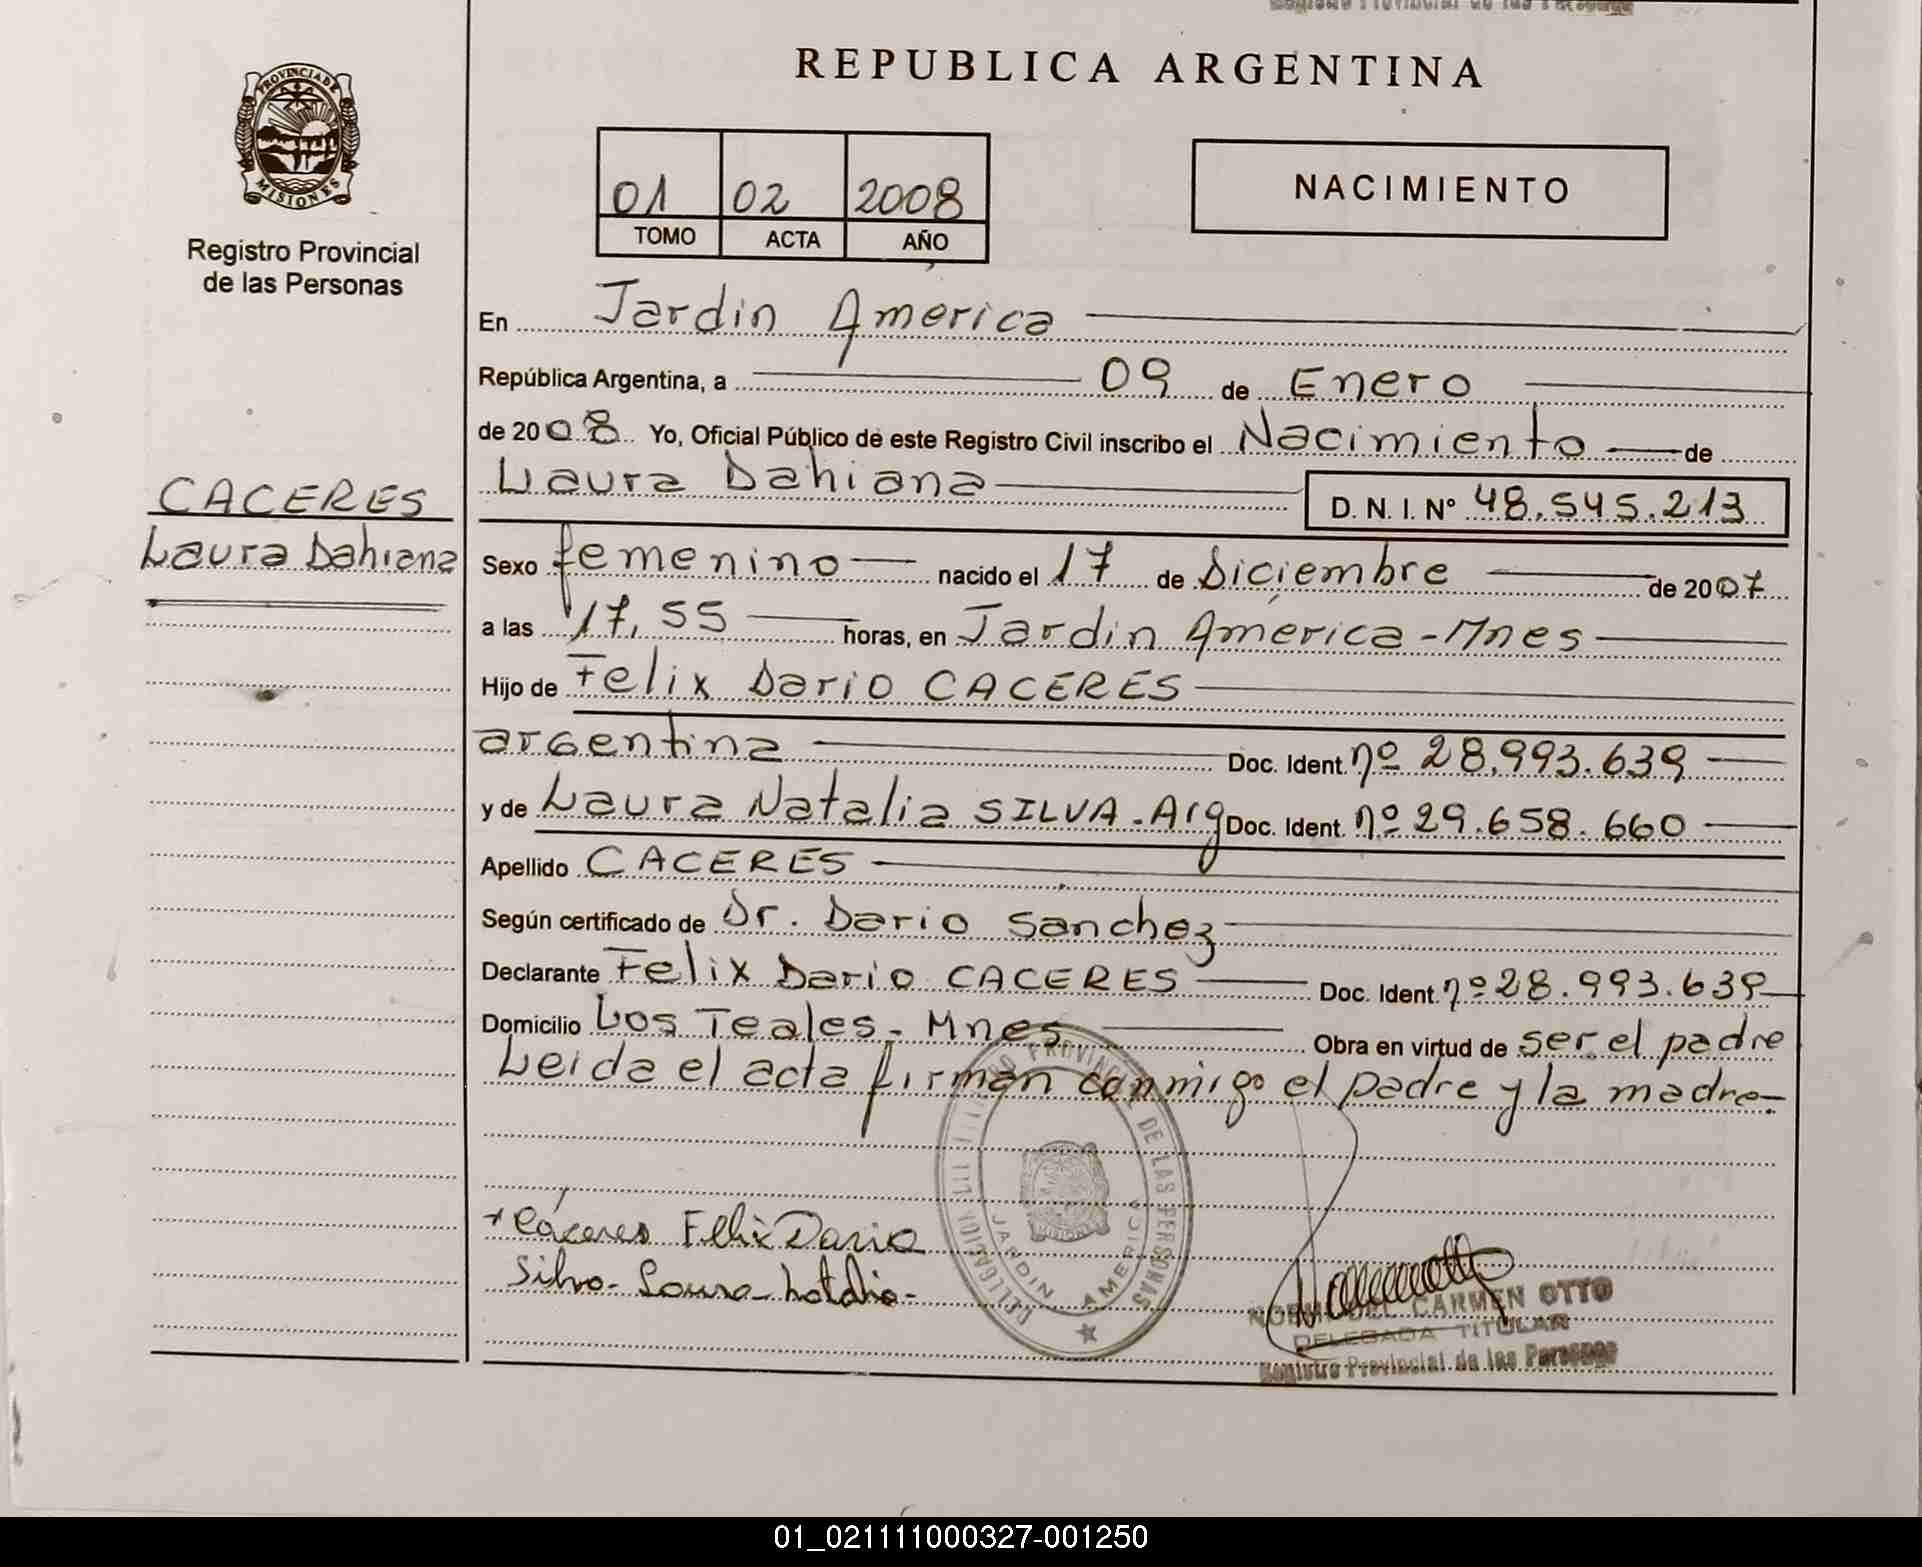 Registro Provincial de las Personas
REPUBLICA ARGENTINA
PROVINCIA DE
MISIONES
Registro Provincial
de las Personas
01 02 2008
TOMO ACTA AÑO
NACIMIENTO
CACERES
Laura Dahiana
En Jardin America
República Argentina, a 09 de Enero
de 2008 Yo, Oficial Público de este Registro Civil inscribo el Nacimiento de
Laura Dahiana D. N. I. Nº 48.545.213
Sexo femenino nacido el 17 de Diciembre de 2007
a las 17,55 horas, en Jardin America - Mnes
Hijo de Felix Dario CACERES
argentina Doc. Ident. nº 28.993.639
y de Laura Natalia SILVA - Arg Doc. Ident. nº 29.658.660
Apellido CACERES
Según certificado de Dr. Dario Sanchez
Declarante Felix Dario CACERES Doc. Ident. nº 28.993.639
Domicilio Los Teales - Mnes Obra en virtud de ser el padre
Leida el acta firman conmigo el padre y la madre-
PROVINCIAL DE LAS PERSONAS
DELEGACION
JARDIN AMERICA
+ Cáceres Felix Dario
Silva - Laura - Natalia -
NORMA DEL CARMEN OTTO
DELEGADA TITULAR
Registro Provincial de las Personas
01_021111000327-001250